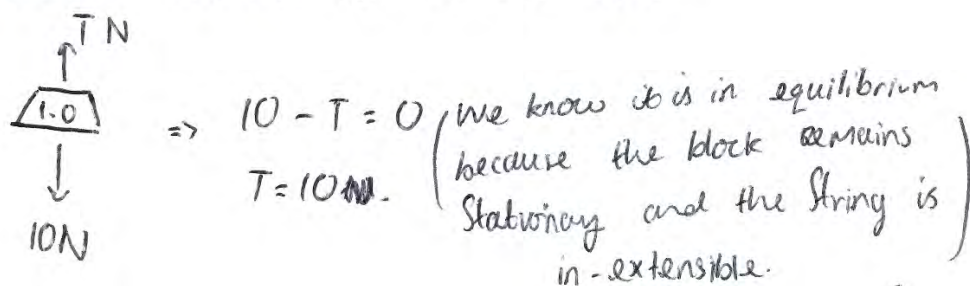 T N
1.0
10N
=> 10 - T = 0
T = 10N.
(We know it is in equilibrium
because the block remains
Stationay and the String is
in-extensible.)